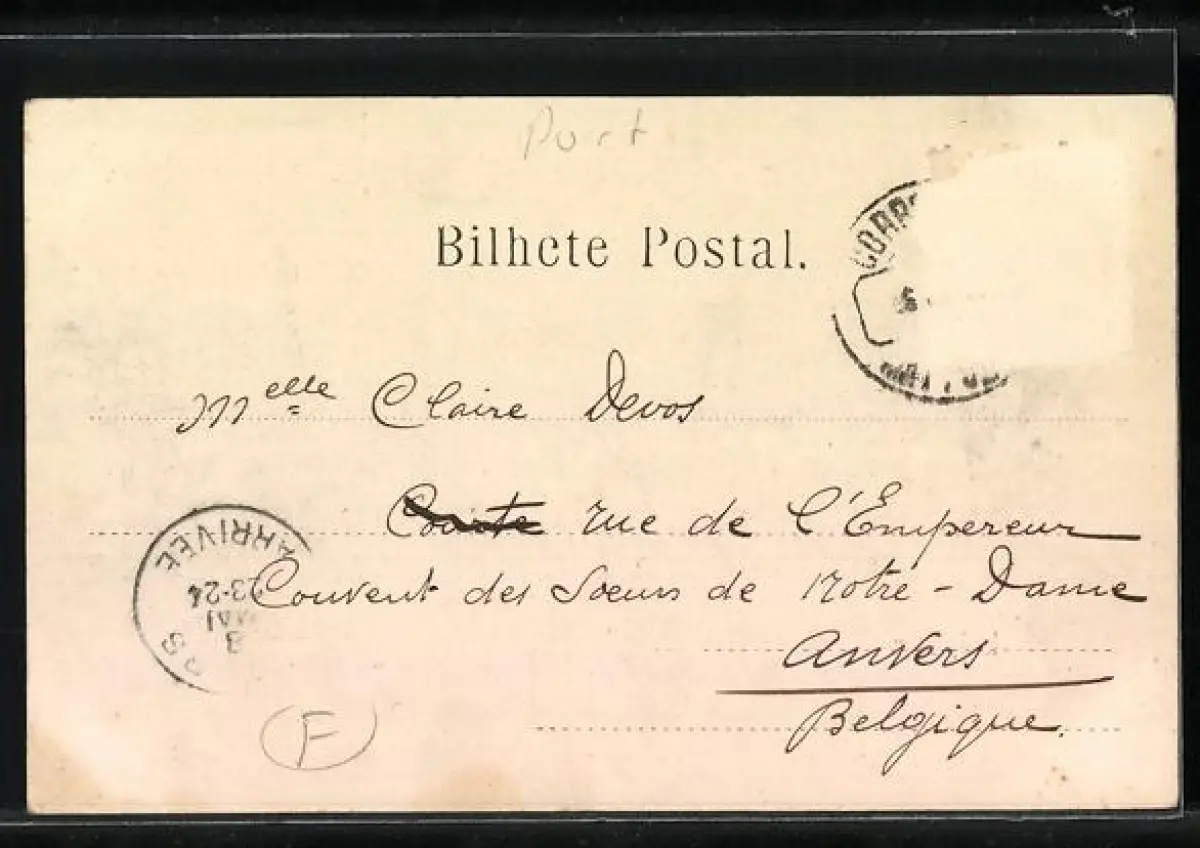 Port
Bilhete Postal.
CORR
Melle Claire Devos
rue de l'Empereur
Couvent des Soeurs de Notre-Dame
Anvers
Belgique.
ARRIVEE
23-24
MAI
F